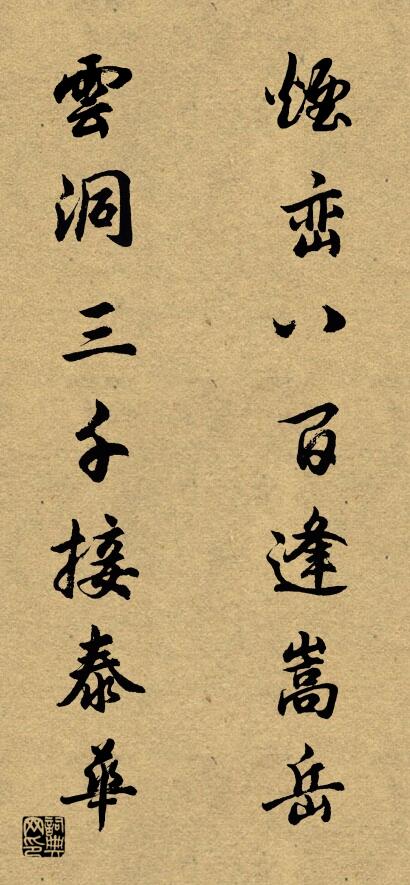 煙峦八百逢嵩岳
雲洞三千接泰華
詞典网印